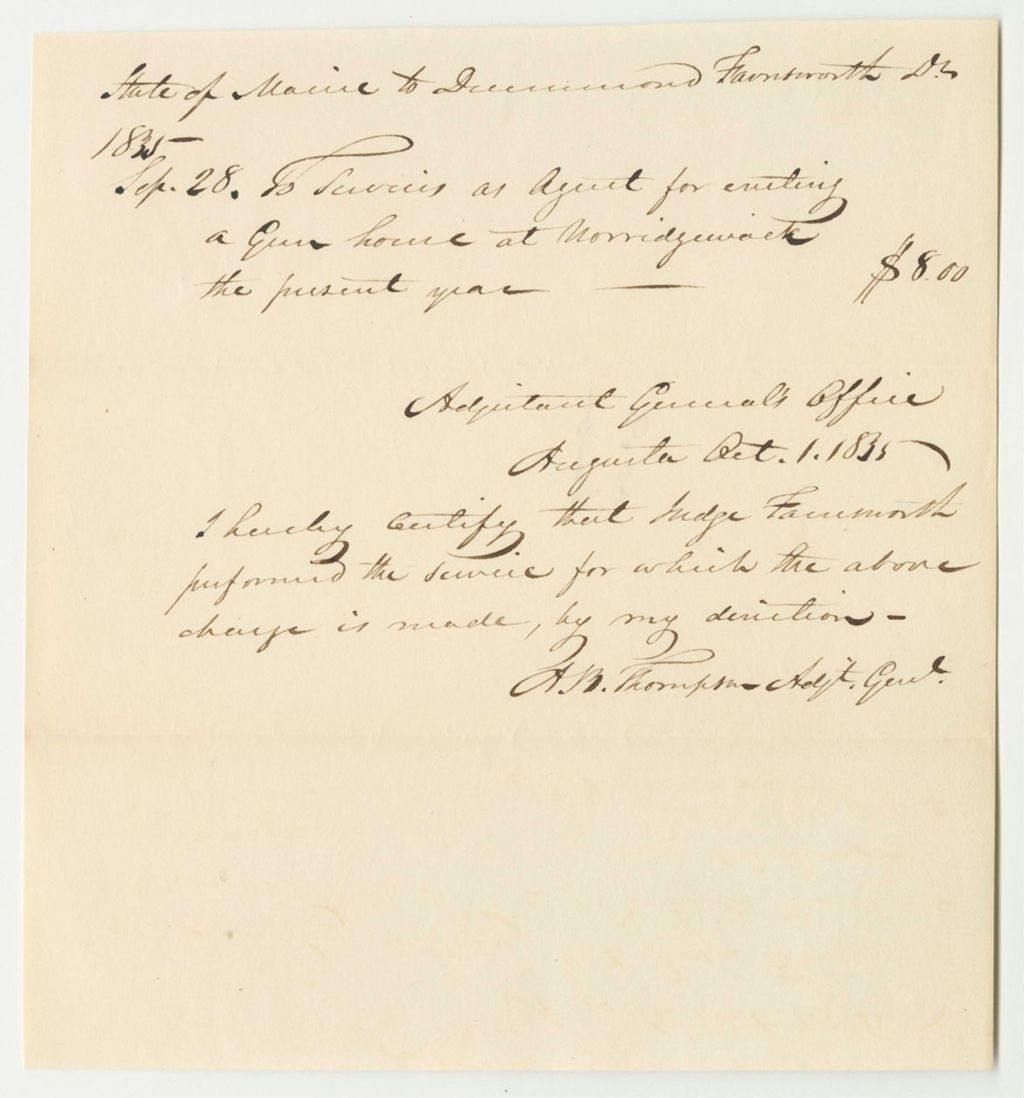 State of Maine to Drummond Farnsworth Dr
1835
Sep. 28. To Services as Agent for erecting
a Gun house at Norridgewock
the present year — $8.00
Adjutant General's Office
Augusta Oct. 1. 1835
I hereby certify that Judge Farnsworth
performed the service for which the above
charge is made, by my direction -
A.B. Thompson Adjt. Genl.